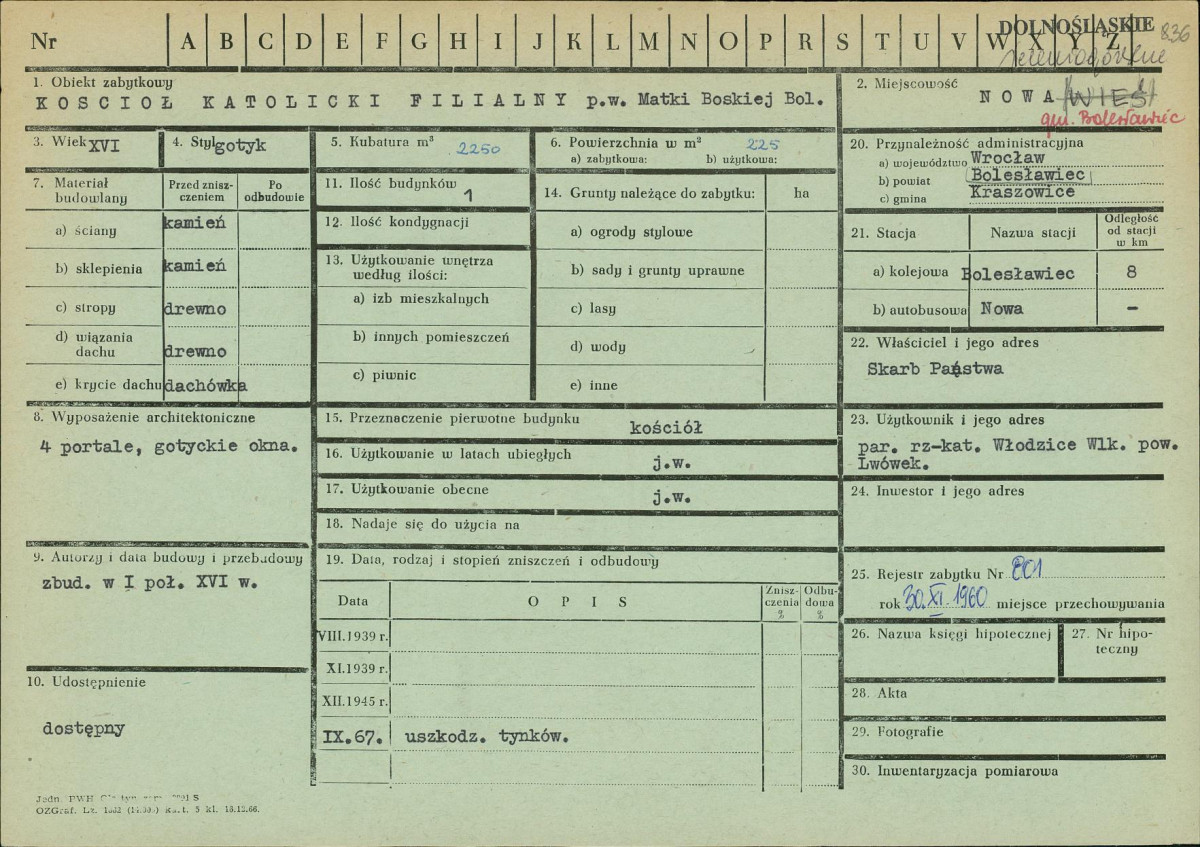 Nr A B C D E F G H I J K L M N O P R S T U V W X Y Z
DOLNOŚLĄSKIE
836
jeleniogórskie
1. Obiekt zabytkowy
KOSCIOŁ KATOLICKI FILIALNY p.w. Matki Boskiej Bol.
2. Miejscowość
NOWA WIEŚ
gm. Bolesławiec
3. Wiek XVI
4. Styl gotyk
5. Kubatura m³ 2250
6. Powierzchnia w m² 225
a) zabytkowa: b) użytkowa:
7. Materiał budowlany
Przed znisz-
czeniem
Po
odbudowie
a) ściany kamień
b) sklepienia kamień
c) stropy drewno
d) wiązania
dachu drewno
e) krycie dachu dachówka
8. Wyposażenie architektoniczne
4 portale, gotyckie okna.
9. Autorzy i data budowy i przebudowy
zbud. w I poł. XVI w.
10. Udostępnienie
dostępny
11. Ilość budynków 1
12. Ilość kondygnacji
13. Użytkowanie wnętrza
według ilości:
a) izb mieszkalnych
b) innych pomieszczeń
c) piwnic
14. Grunty należące do zabytku: ha
a) ogrody stylowe
b) sady i grunty uprawne
c) lasy
d) wody
e) inne
15. Przeznaczenie pierwotne budynku kościół
16. Użytkowanie w latach ubiegłych j.w.
17. Użytkowanie obecne j.w.
18. Nadaje się do użycia na
19. Data, rodzaj i stopień zniszczeń i odbudowy
Data OPIS
Znisz-
czenia
%
Odbu-
dowa
%
VIII.1939 r.
XI.1939 r.
XII.1945 r.
IX.67. uszkodz. tynków.
20. Przynależność administracyjna
a) województwo Wrocław
b) powiat Bolesławiec
c) gmina Kraszowice
21. Stacja Nazwa stacji
Odległość
od stacji
w km
a) kolejowa Bolesławiec 8
b) autobusowa Nowa –
22. Właściciel i jego adres
Skarb Państwa
23. Użytkownik i jego adres
par. rz-kat. Włodzice Wlk. pow.
Lwówek.
24. Inwestor i jego adres
25. Rejestr zabytku Nr 801
rok 30.XI.1960 miejsce przechowywania
26. Nazwa księgi hipotecznej
27. Nr hipo-
teczny
28. Akta
29. Fotografie
30. Inwentaryzacja pomiarowa
OZGraf. 5 kl. 16.12.66.